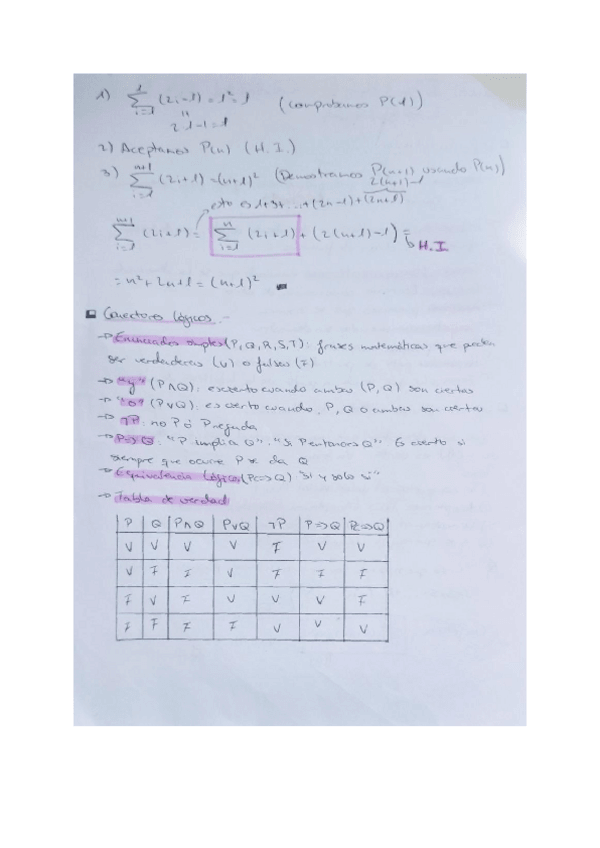 1) ∑_{i=1}^{1} (2i-1) = 1² = 1 (Comprobamos P(1))
2·1-1=1
2) Aceptamos P(n) (H.I.)
3) ∑_{i=1}^{n+1} (2i+1) = (n+1)² (Demostramos P(n+1) usando P(n))
2(n+1)-1
esto es 1+3+...+(2n-1)+(2n+1)
∑_{i=1}^{n+1} (2i+1) = ∑_{i=1}^{n} (2i+1) + (2(n+1)-1) =
H.I
= n²+2n+1 = (n+1)²
Conectores lógicos.-
→ Enunciados simples (P,Q,R,S,T): frases matemáticas que pueden
ser verdaderas (V) o falsas (F)
→ "y" (P∧Q): es cierto cuando ambas (P,Q) son ciertas
→ "o" (P∨Q): es cierto cuando P, Q o ambas son ciertas
→ ¬P: no P ó P negada
→ P⇒Q: "P implica Q". "Si P entonces Q" Es cierto si
siempre que ocurre P se da Q
→ Equivalencia lógica (P⇔Q) "si y solo si"
→ Tabla de verdad
P Q P∧Q P∨Q ¬P P⇒Q P⇔Q
V V V V F V V
V F F V F F F
F V F V V V F
F F F F V V V